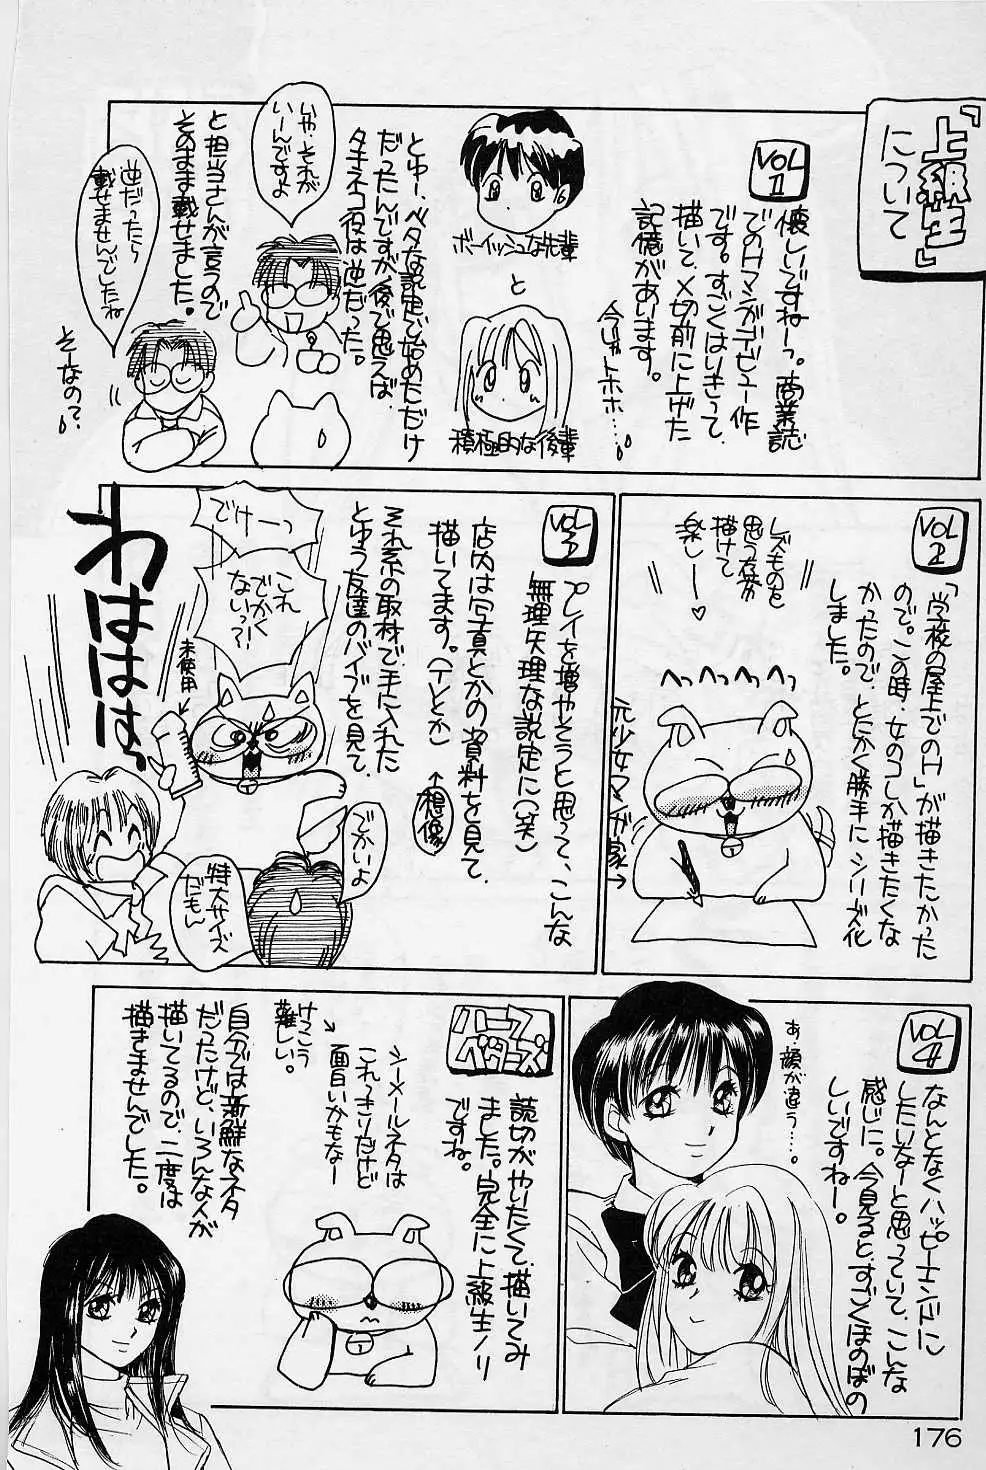 「上級生」
について
VOL
1
懐しいですねーっ。商業誌
でのHマンガデビュー作
です。すごくはりきって、
描いて、〆切前に上げた
記憶があります。
今じゃトホホ……。
ボーイッシュな先輩
と
積極的な後輩
とゆー、ベタな設定で始めただけ
だったんですが、後で思えば、
タチネコ役は逆だった。
いや、それが
いーんですよ
と担当さんが言うので
そのまま載せました。
逆だったら
載せませんでしたね
そーなの?
VOL
2
「学校の屋上でのH」が描きたかった
ので。この時、女のコしか描きたくな
かったので、とにかく勝手にシリーズ化
しました。
レズものを
思う存分
描けて
楽しー♡
へっへっへっへっ
元少女マンガ家→
VOL
3
プレイを増やそうと思って、こんな
無理矢理な設定に(笑)
店内は写真とかの資料を見て、
描いてます。(Tとか)
←想像
それ系の取材で手に入れた
とゆう友達のバイブを見て、
でけーっ
これ
でかく
ない?!
未使用
わははは
でかいよ
特大サイズ
だもん
VOL
4
なんとなくハッピーエンドに
したいなーと思っていて、こんな
感じに。今見ると、すごくほのぼの
しいですねー。
あ、顔が違う……。
ハーフ
ベターズ
読切がやいたくて、描いてみ
ました。完全に上級生ノリ
ですね。
シーメールネタは
これっきりだけど
面白いかもなー
→
けっこう
難しい。
自分では新鮮なネタ
だったけど、いろんな人が
描いてるので、二度は
描きませんでした。
176